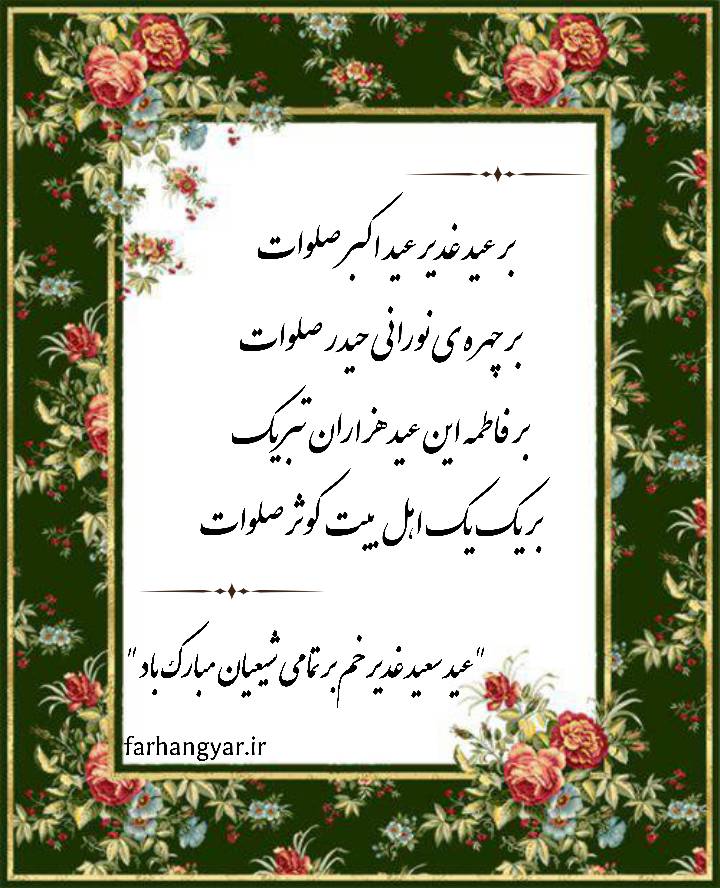 بر عید غدیر عید اکبر صلوات
بر چهره ی نورانی حیدر صلوات
بر فاطمه این عید هزاران تبریک
بر یک یک اهل بیت کوثر صلوات
"عید سعید غدیر خم بر تمامی شیعیان مبارک باد"
farhangyar.ir